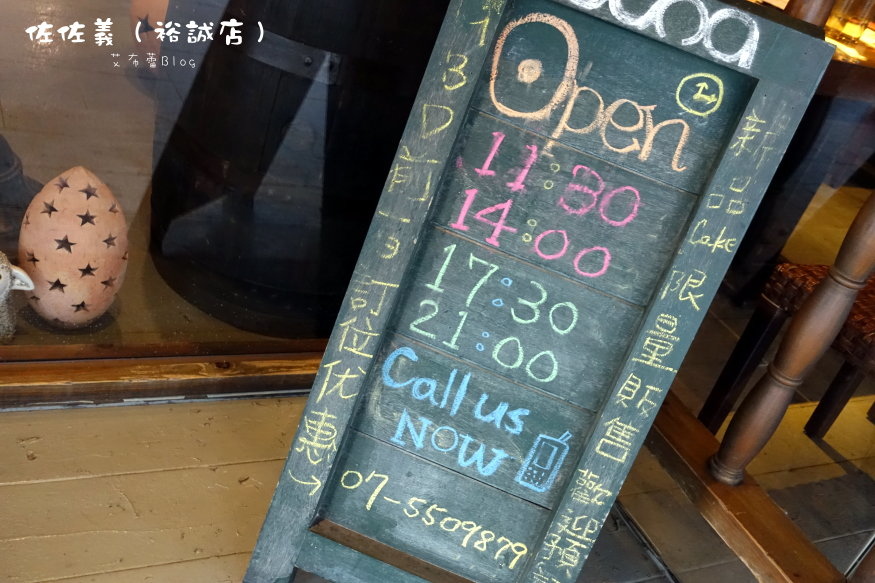 佐佐義（裕誠店）
艾布蕾Blog
Open
11:30
14:00
17:30
21:00
Call us
NOW
07-5509879
訂位优惠
新品Cake限量販售歡迎預訂